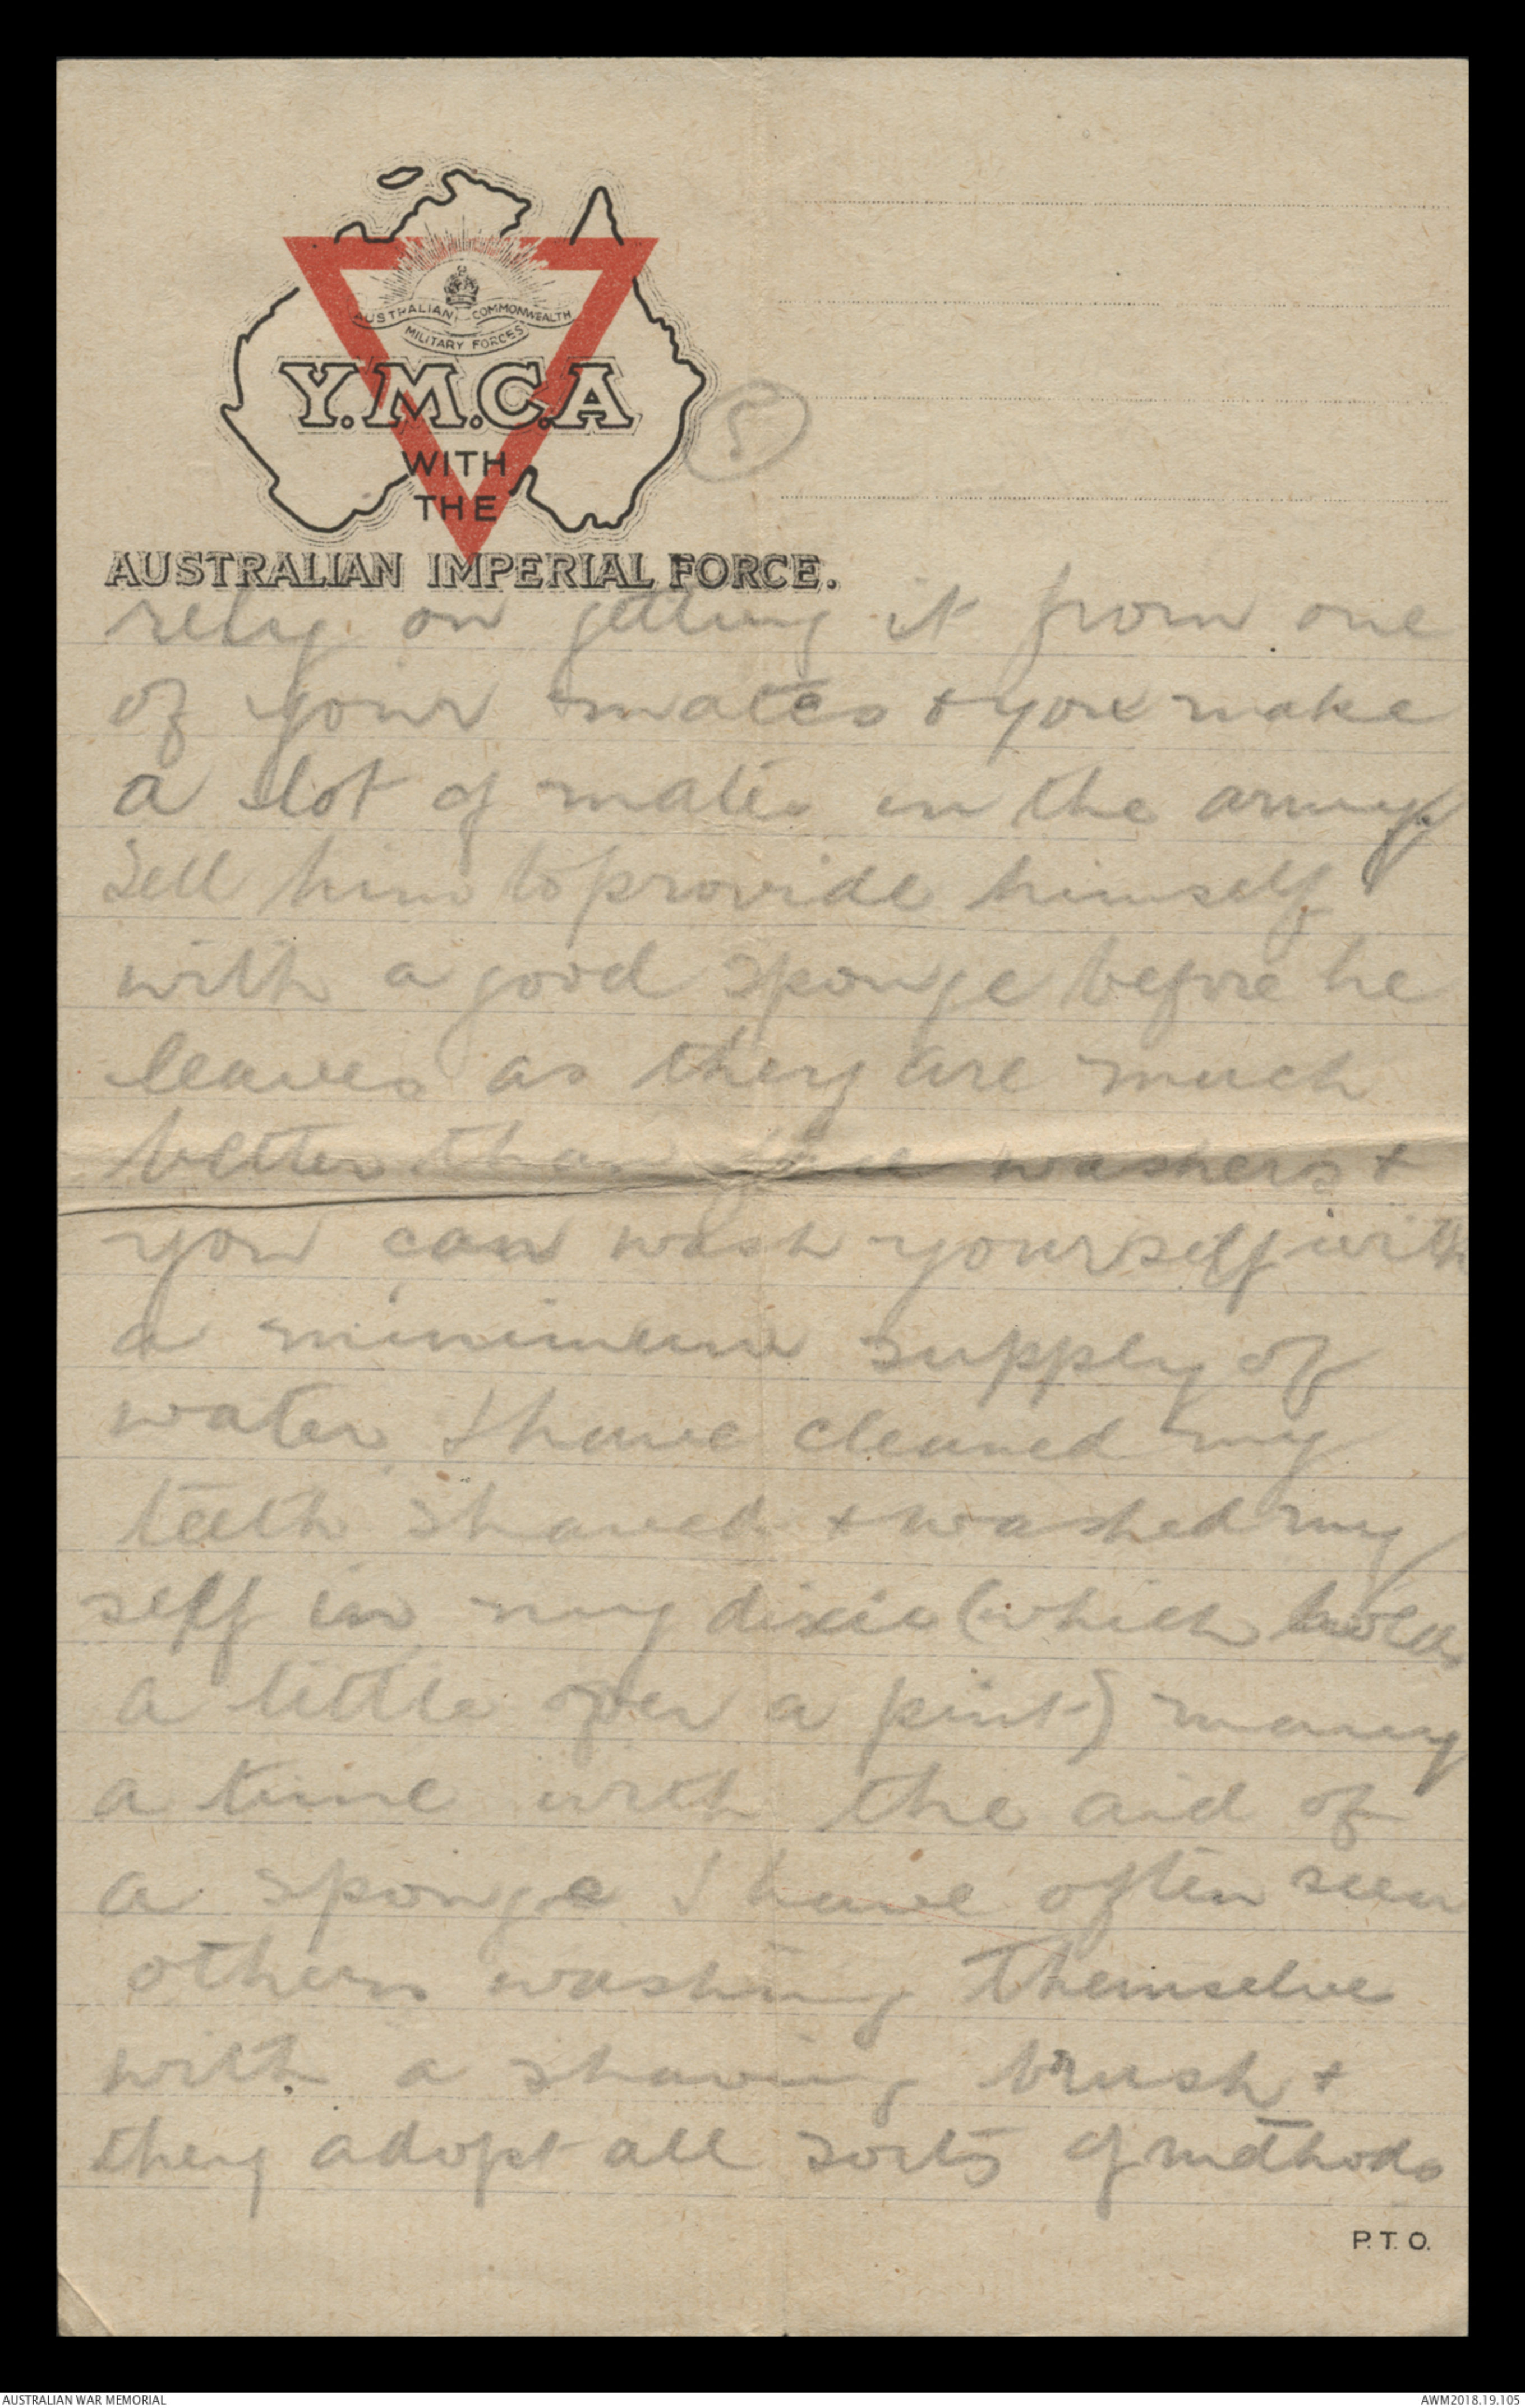 AUSTRALIAN COMMONWEALTH
MILITARY FORCES
Y.M.C.A
WITH
THE
AUSTRALIAN IMPERIAL FORCE.
5
rely on getting it from one
of your mates & you make
a lot of mates in the army.
Tell him to provide himself
with a good sponge before he
leaves as they are much
better than face washers &
you can wash yourself with
a minimum supply of
water. I have cleaned my
teeth shaved & washed my
self in my dixie (which holds
a little over a pint) many
a time with the aid of
a sponge I have often seen
others washing themselve
with a shaving brush &
they adopt all sorts of methods
P.T.O.
AUSTRALIAN WAR MEMORIAL
AWM2018.19.105